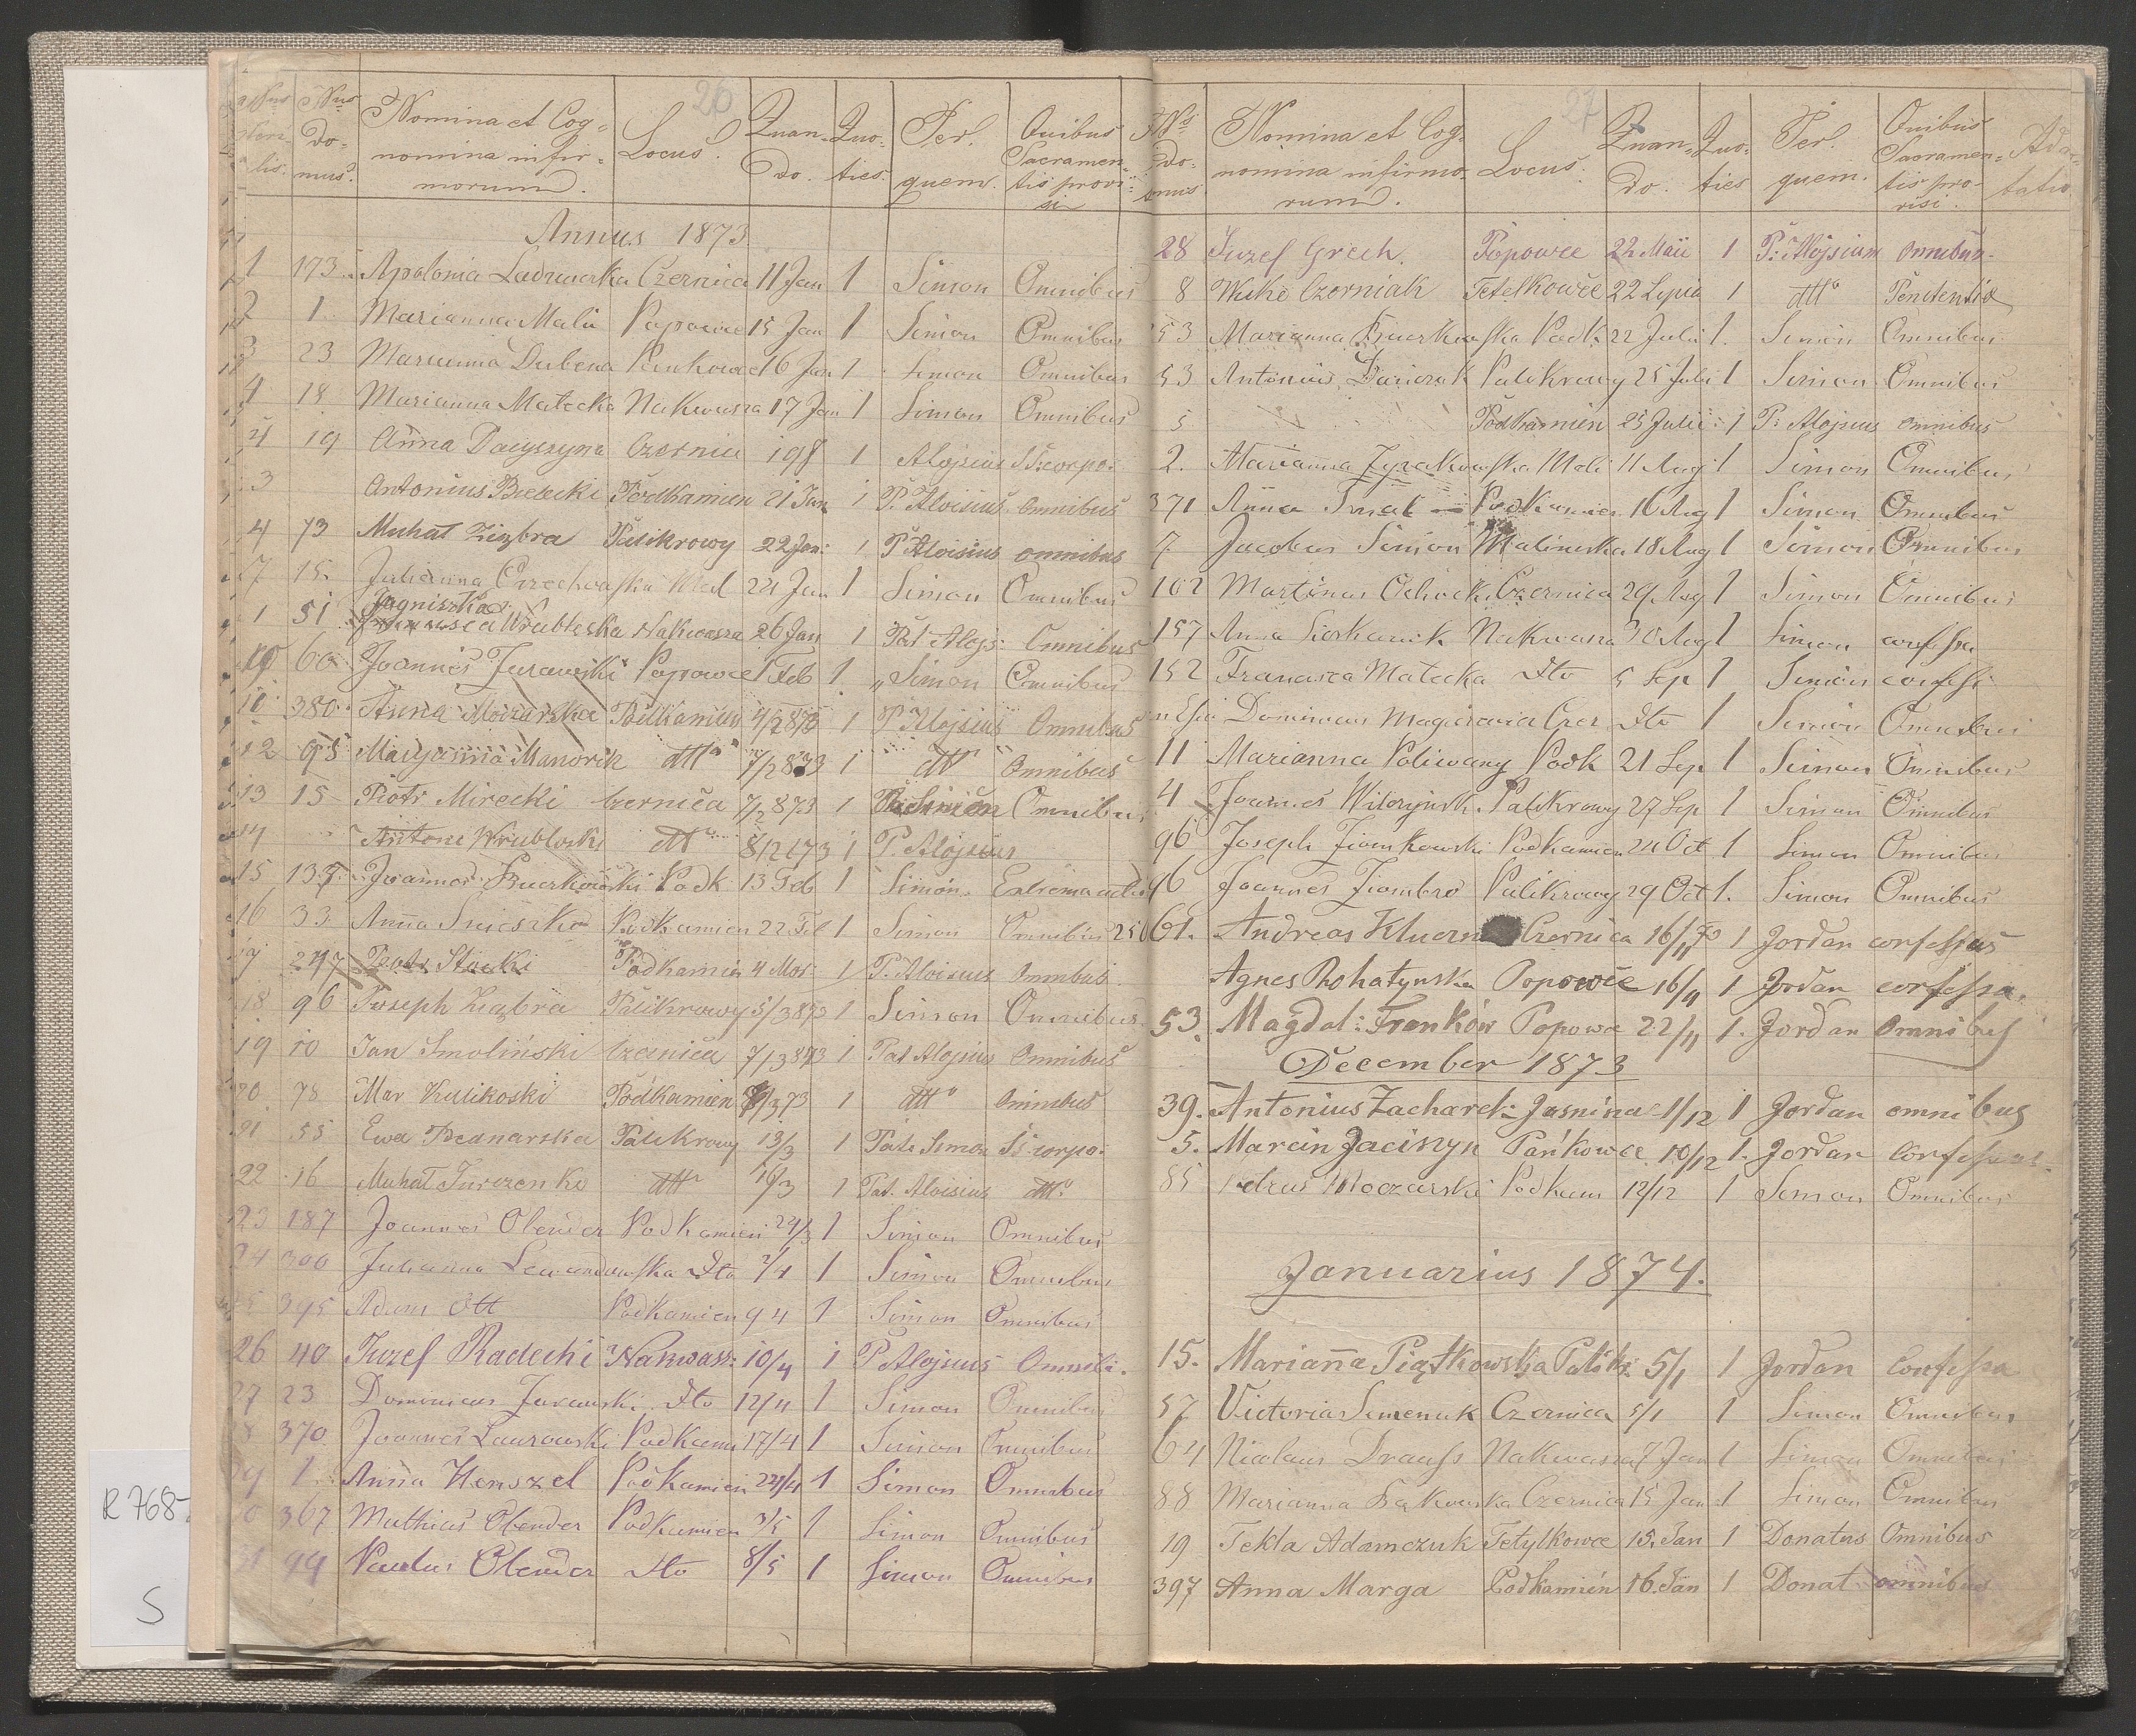 26
Nus Do-mus. Nomina et Cog-nomina infir-morum. Locus. Quan-do. Quo-ties. Per quem. Quibus Sacramen-tis provi-si
Annus 1873
1 173 Apolonia Czernica 11 Jan 1 Simon Omnibus
2 1 Marianna Mali Popowce 15 Jan 1 Simon Omnibus
3 23 Marianna Penkowce 16 Jan 1 Simon Omnibus
4 18 Marianna Matecka Nakwasza 17 Jan 1 Simon Omnibus
4 19 Anna Czernica 1 Aloysius
3 Antonius Bielecki Podkamien 21 Jan 1 P. Aloisius omnibus
4 73 Muhat Ziębra Palikrowy 22 Jan: 1 P Aloisius omnibus
7 15. Julianna 24 Jan 1 Simon Omnibus
1 51 Jagniszka Wrubleska Nakwasza 26 Jan 1 Pat Alojs: Omnibus
60 Joannes Zurawski Popowce 1 Feb 1 „Simon Omnibus
380 Anna Podkamien 1 P Alojsius Omnibus
12 95 Maryanna Manorik dtto 7/2 873 1 dtto Omnibus
13 15 Piotr Mirecki Czernica 7/2 873 1 Simon Omnibus
14 Antoni Wrubloski dtto 1 P. Alojsius
15 Joannes Buczkowski Podk 13 Feb 1 Simon
16 33 Anna Podkamien 22 Feb 1 Simon Omnibus
247 Piotr Podkamin 4 1 P. Aloisius Omnibus
18 96 Joseph Ziębra Palikrowy 5/3 873 1 Simon Omnibus
19 10 Jan Smoliński Czernica 7/3 873 1 Pat Alojsius Omnibus
20 78 Mar Kulikoski Podkamien 1 dtto Omnibus
21 55 Ewa Bednarska Palikrowy 13/3 1 Pat: Simon
22 16 Muhat Turczenko dtto 16/3 1 Pat. Aloisius dtto
23 187 Joannes Olender Podkamien 24/3 1 Simon Omnibus
24 300 Julianna Lewandowska Dto 1 Simon Omnibus
395 Adam Ott Podkamien 9 4 1 Simon Omnibus
26 40 Iuzef Radecki Nakwasz: 10/4 1 P Alojsius Omnibi.
27 23 Dominicus Zurawski Dto 12/4 1 Simon Omnibus
370 Joannes Laurowski Podkami 17/4 1 Simon Omnibus
1 Anna Hemszel Podkamien 24/4 1 Simon Omnibus
367 Mathias Olender Podkamien 3/5 1 Simon Omnibus
99 Paulus Olender Dto 8/5 1 Simon Omnibus
27
Nus do-mus Nomina et Cog-nomina infirmo-rum. Locus. Quan-do. Quo-ties Per quem. Quibus Sacramen-tis pro-visi. Adno-tatio
28 Iuzef Grech. Popowce 22 Maii 1 P: Alojsium omnibus
8 Wicke Czorniak Tetelkowce 22 Lypia 1 dtto Penitentia
53 Marianna Buczkowska Podk 22 Julii 1. Simon Omnibus
53 Antonius Palikrowy 25 Julii 1 Simon Omnibus
5 Podkamien 25 Julii 1 P: Alojsius omnibus
2. Marianna Zyrakowska Mali 11 Aug 1 Simon Omnibus
371 Anna Podkamien 16 Aug 1 Simon Omnibus
7 Jacobus Simon Malinuska 18 Aug 1 Simon Omnibus
102 Martinus Ochocki Czernica 29 Aug 1 Simon Omnibus
157 Anna Nakwasza 30 Aug 1 Simon confessa
152 Francisca Matecka Dto 5 Sep 1 Simon
Dominicus Czer Dto 1 Simon Omnibus
11 Marianna Poliwany Podk 21 Sep 1 Simon Omnibus
4 Joannes Wilczyński Palikrowy 27 Sep 1 Simon Omnibus
96 Joseph Ziomkowski Podkamien 24 Oct 1 Simon Omnibus
96 Joannes Ziombro Palikrowy 29 Oct 1. Simon Omnibus
61. Andreas Czernica 16/11 1 Jordan confessus
Agnes Rohatynska Popowce 16/11 1 Jordan confessa.
53. Magdal: Franków Popowce 22/11 1. Jordan omnibus
December 1873
39. Antonius Zacharek: Jasnina 1/12 1 Jordan omnibus
5. Marcin Jaciszyn Pańkowce 10/12 1. Jordan Confessus.
85 Petrus Moczarski Podkam 12/12 1 Simon Omnibus
Januarius 1874.
15. Marianna Piątkowska Palikr: 5/1 1 Jordan Confessa
57 Victoria Semeniuk Czernica 5/1 1 Simon Omnibus
64 Nicolaus Drauss Nakwasza 7 Jan 1 Simon Omnibus
88 Marianna Bąkowska Czernica 15 Jan 1 Simon Omnibus
19 Tekla Adamczuk Tetylkowce 15. Jan 1 Donatus Omnibus
397 Anna Marga Podkamień 16. Jan 1 Donat omnibus
R 768-
S